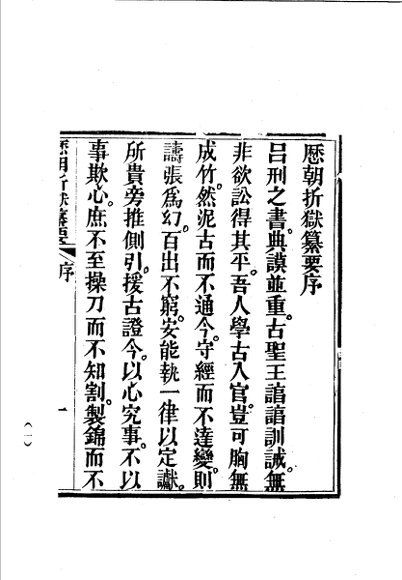 歷朝折獄纂要序
呂刑之書。典謨並重。古聖王諳諳訓誡。無
非欲訟得其平。吾人學古入官。豈可胸無
成竹。然泥古而不通今。守經而不達變。則
譸張爲幻。百出不窮。安能執一律以定讞。
所貴旁推側引。援古證今。以心究事。不以
事欺心。庶不至操刀而不知割。製錦而不
歷朝折獄纂要 序 一
(一)